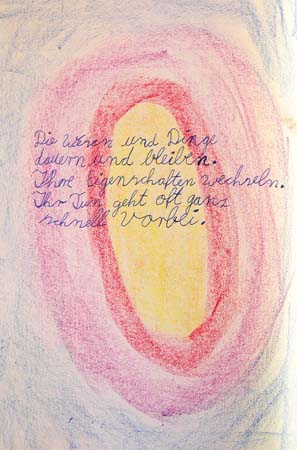 Die Wesen und Dinge
dauern und bleiben.
Ihre Eigenschaften wechseln.
Ihr Tun geht oft ganz
schnell vorbei.